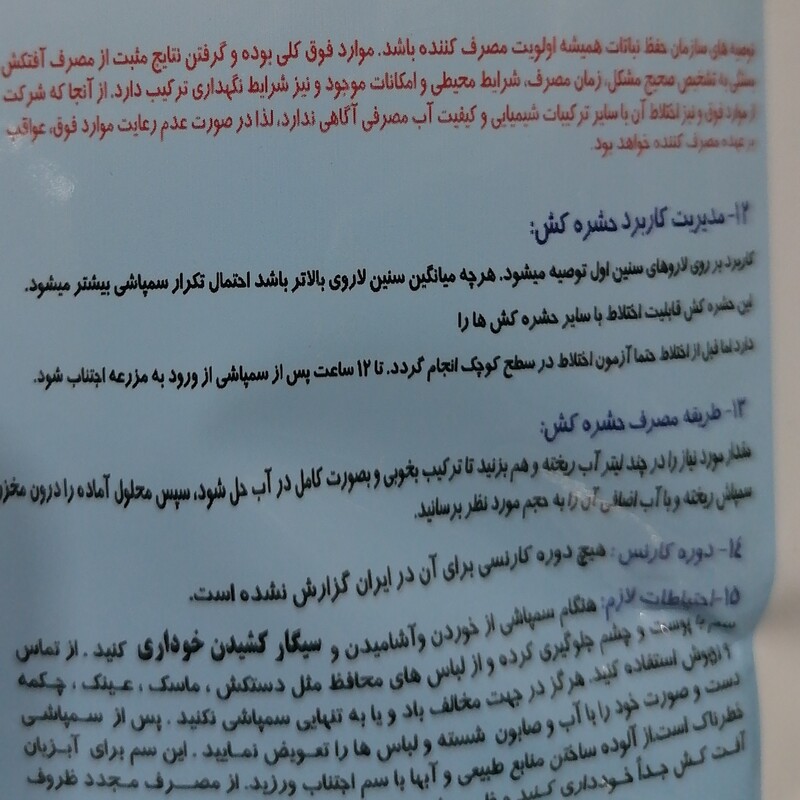 توصیه های سازمان حفظ نباتات همیشه اولویت مصرف کننده باشد. موارد فوق کلی بوده و گرفتن نتایج مثبت از مصرف آفتکش
بستگی به تشخیص صحیح مشکل، زمان مصرف، شرایط محیطی و امکانات موجود و نیز شرایط نگهداری ترکیب دارد. از آنجا که شرکت
از موارد فوق و نیز اختلاط آن با سایر ترکیبات شیمیایی و کیفیت آب مصرفی آگاهی ندارد، لذا در صورت عدم رعایت موارد فوق، عواقب
بر عهده مصرف کننده خواهد بود.
۱۲- مدیریت کاربرد حشره کش:
کاربرد بر روی لاروهای سنین اول توصیه میشود. هرچه میانگین سنین لاروی بالاتر باشد احتمال تکرار سمپاشی بیشتر میشود.
این حشره کش قابلیت اختلاط با سایر حشره کش ها را
دارد اما قبل از اختلاط حتما آزمون اختلاط در سطح کوچک انجام گردد. تا ۱۲ ساعت پس از سمپاشی از ورود به مزرعه اجتناب شود.
۱۳- طریقه مصرف حشره کش:
مقدار مورد نیاز را در چند لیتر آب ریخته و هم بزنید تا ترکیب بخوبی و بصورت کامل در آب حل شود، سپس محلول آماده را درون مخزن
سمپاش ریخته و با آب اضافی آن را به حجم مورد نظر برسانید.
۱۴- دوره کارنس: هیچ دوره کارنسی برای آن در ایران گزارش نشده است.
۱۵- احتیاطات لازم: هنگام سمپاشی از خوردن وآشامیدن و سیگار کشیدن خوداری کنید . از تماس
سم با پوست و چشم جلوگیری کرده و از لباس های محافظ مثل دستکش ، ماسک ، عینک ، چکمه
استفاده کنید. هرگز در جهت مخالف باد و یا به تنهایی سمپاشی نکنید . پس از سمپاشی
دست و صورت خود را با آب و صابون شسته و لباس ها را تعویض نمایید . این سم برای آبزیان
خطرناک است.از آلوده ساختن منابع طبیعی و آبها با سم اجتناب ورزید. از مصرف مجدد ظروف
آفت کش جداً خودداری کنید